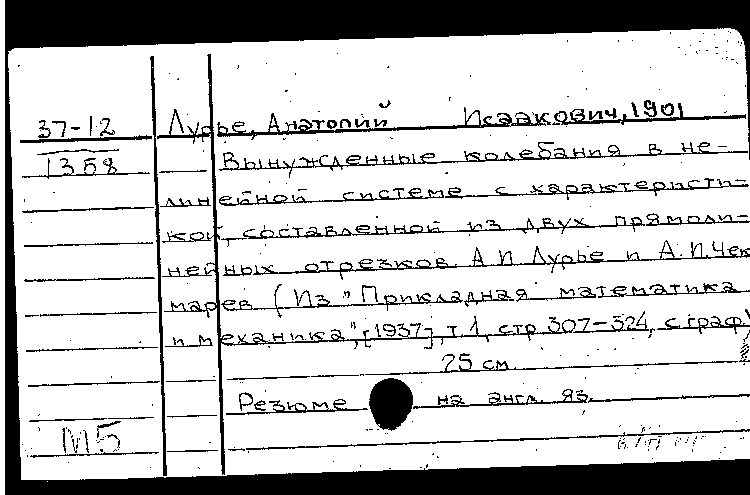 37-12
1358
Лурье, Анатолий Исаакович, 1901
Вынужденные колебания в не-
линейной системе с характеристи-
кой, составленной из двух прямоли-
нейных отрезков. А И Лурье и А. И. Чек
марев (Из "Прикладная математика
и механика", [1937], т. 1, стр 307-324, с граф)
25 см
Резюме на англ яз.
М5